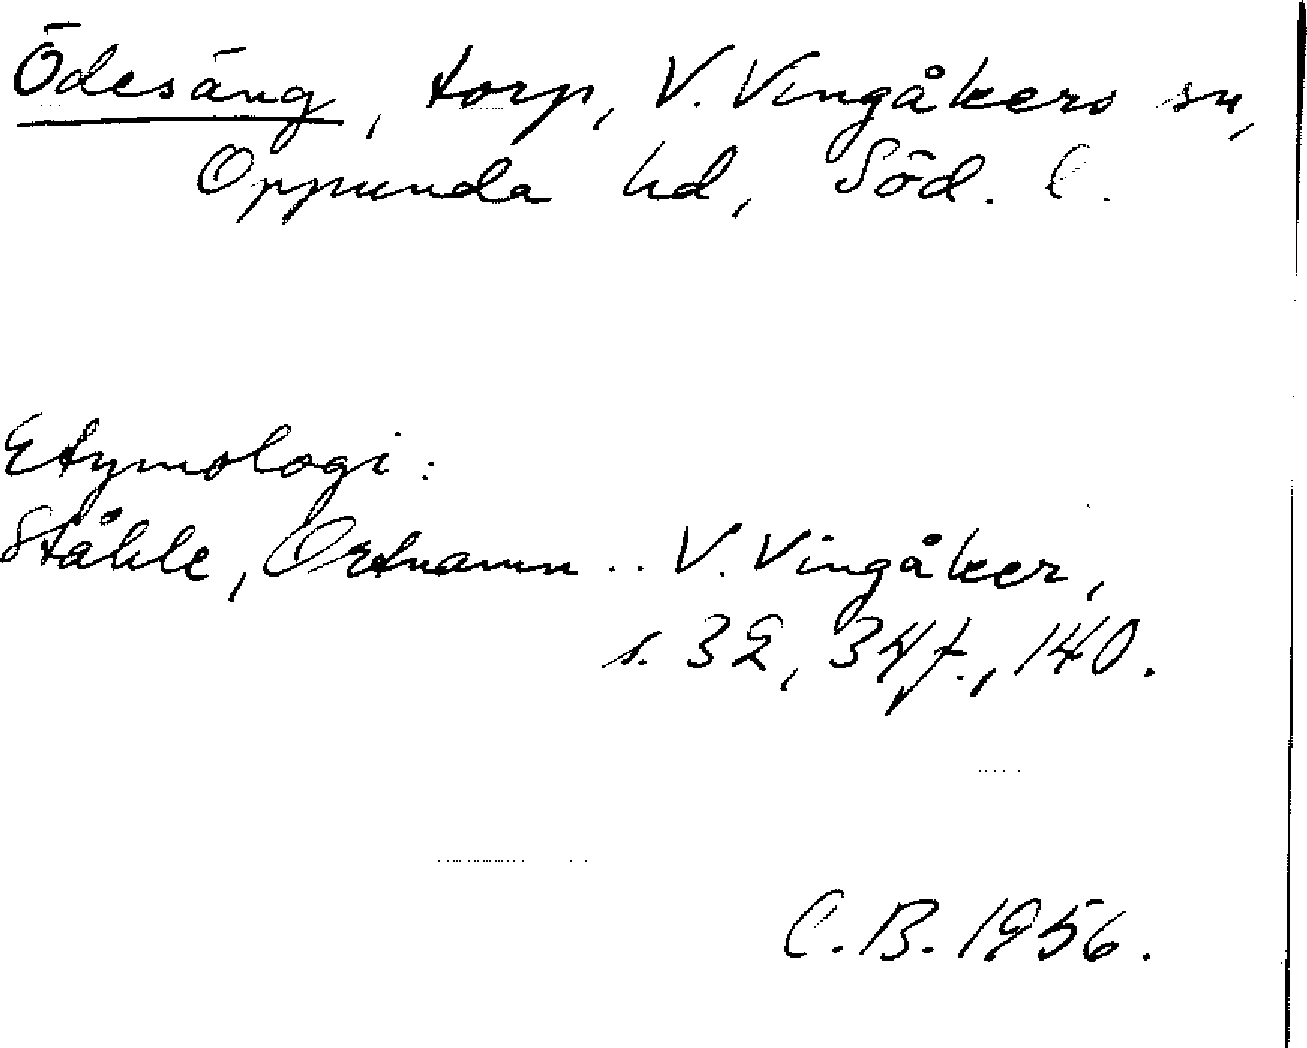 Ödesäng, torp, V. Vingåkers sn,
Oppunda hd, Söd. l.
Etymologi:
Ståhle, Ortnamn .. V. Vingåker,
s. 32, 34 f., 140.
C.B. 1956.